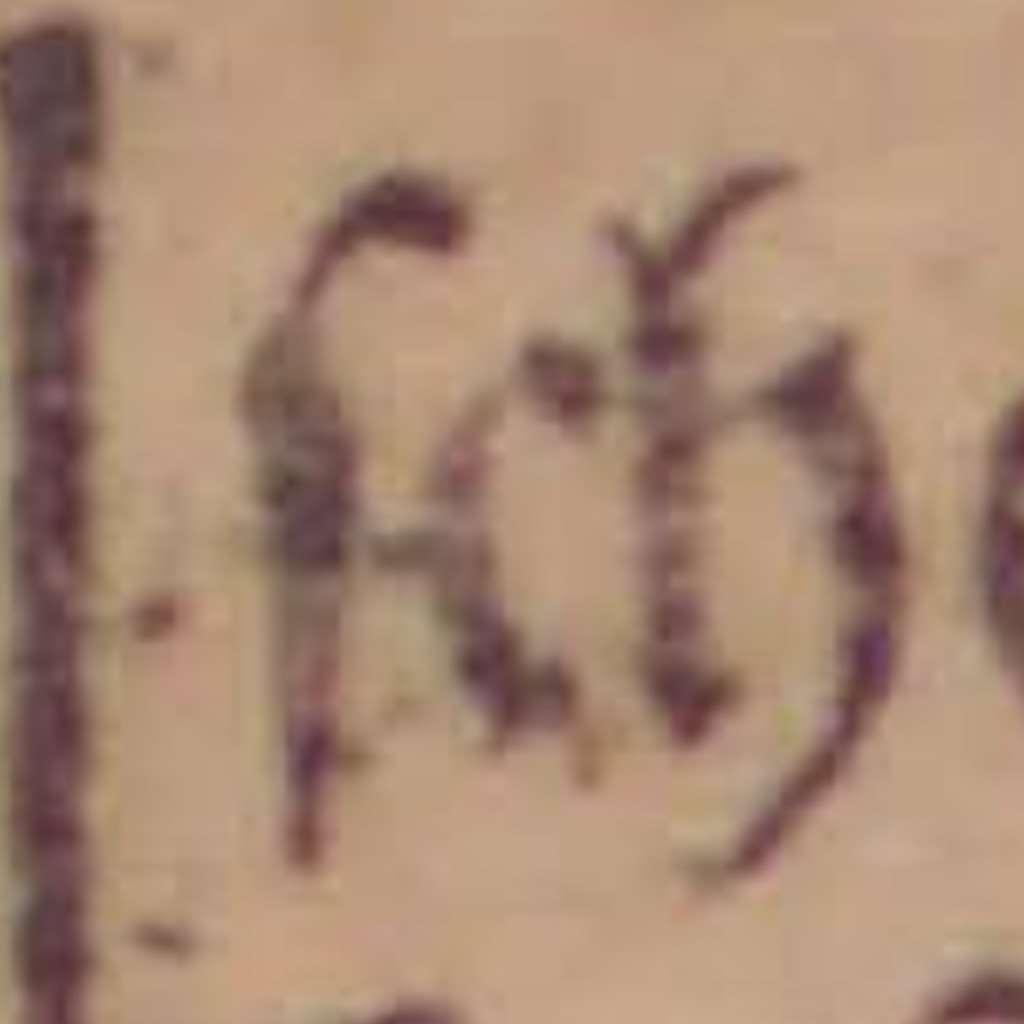 ſch